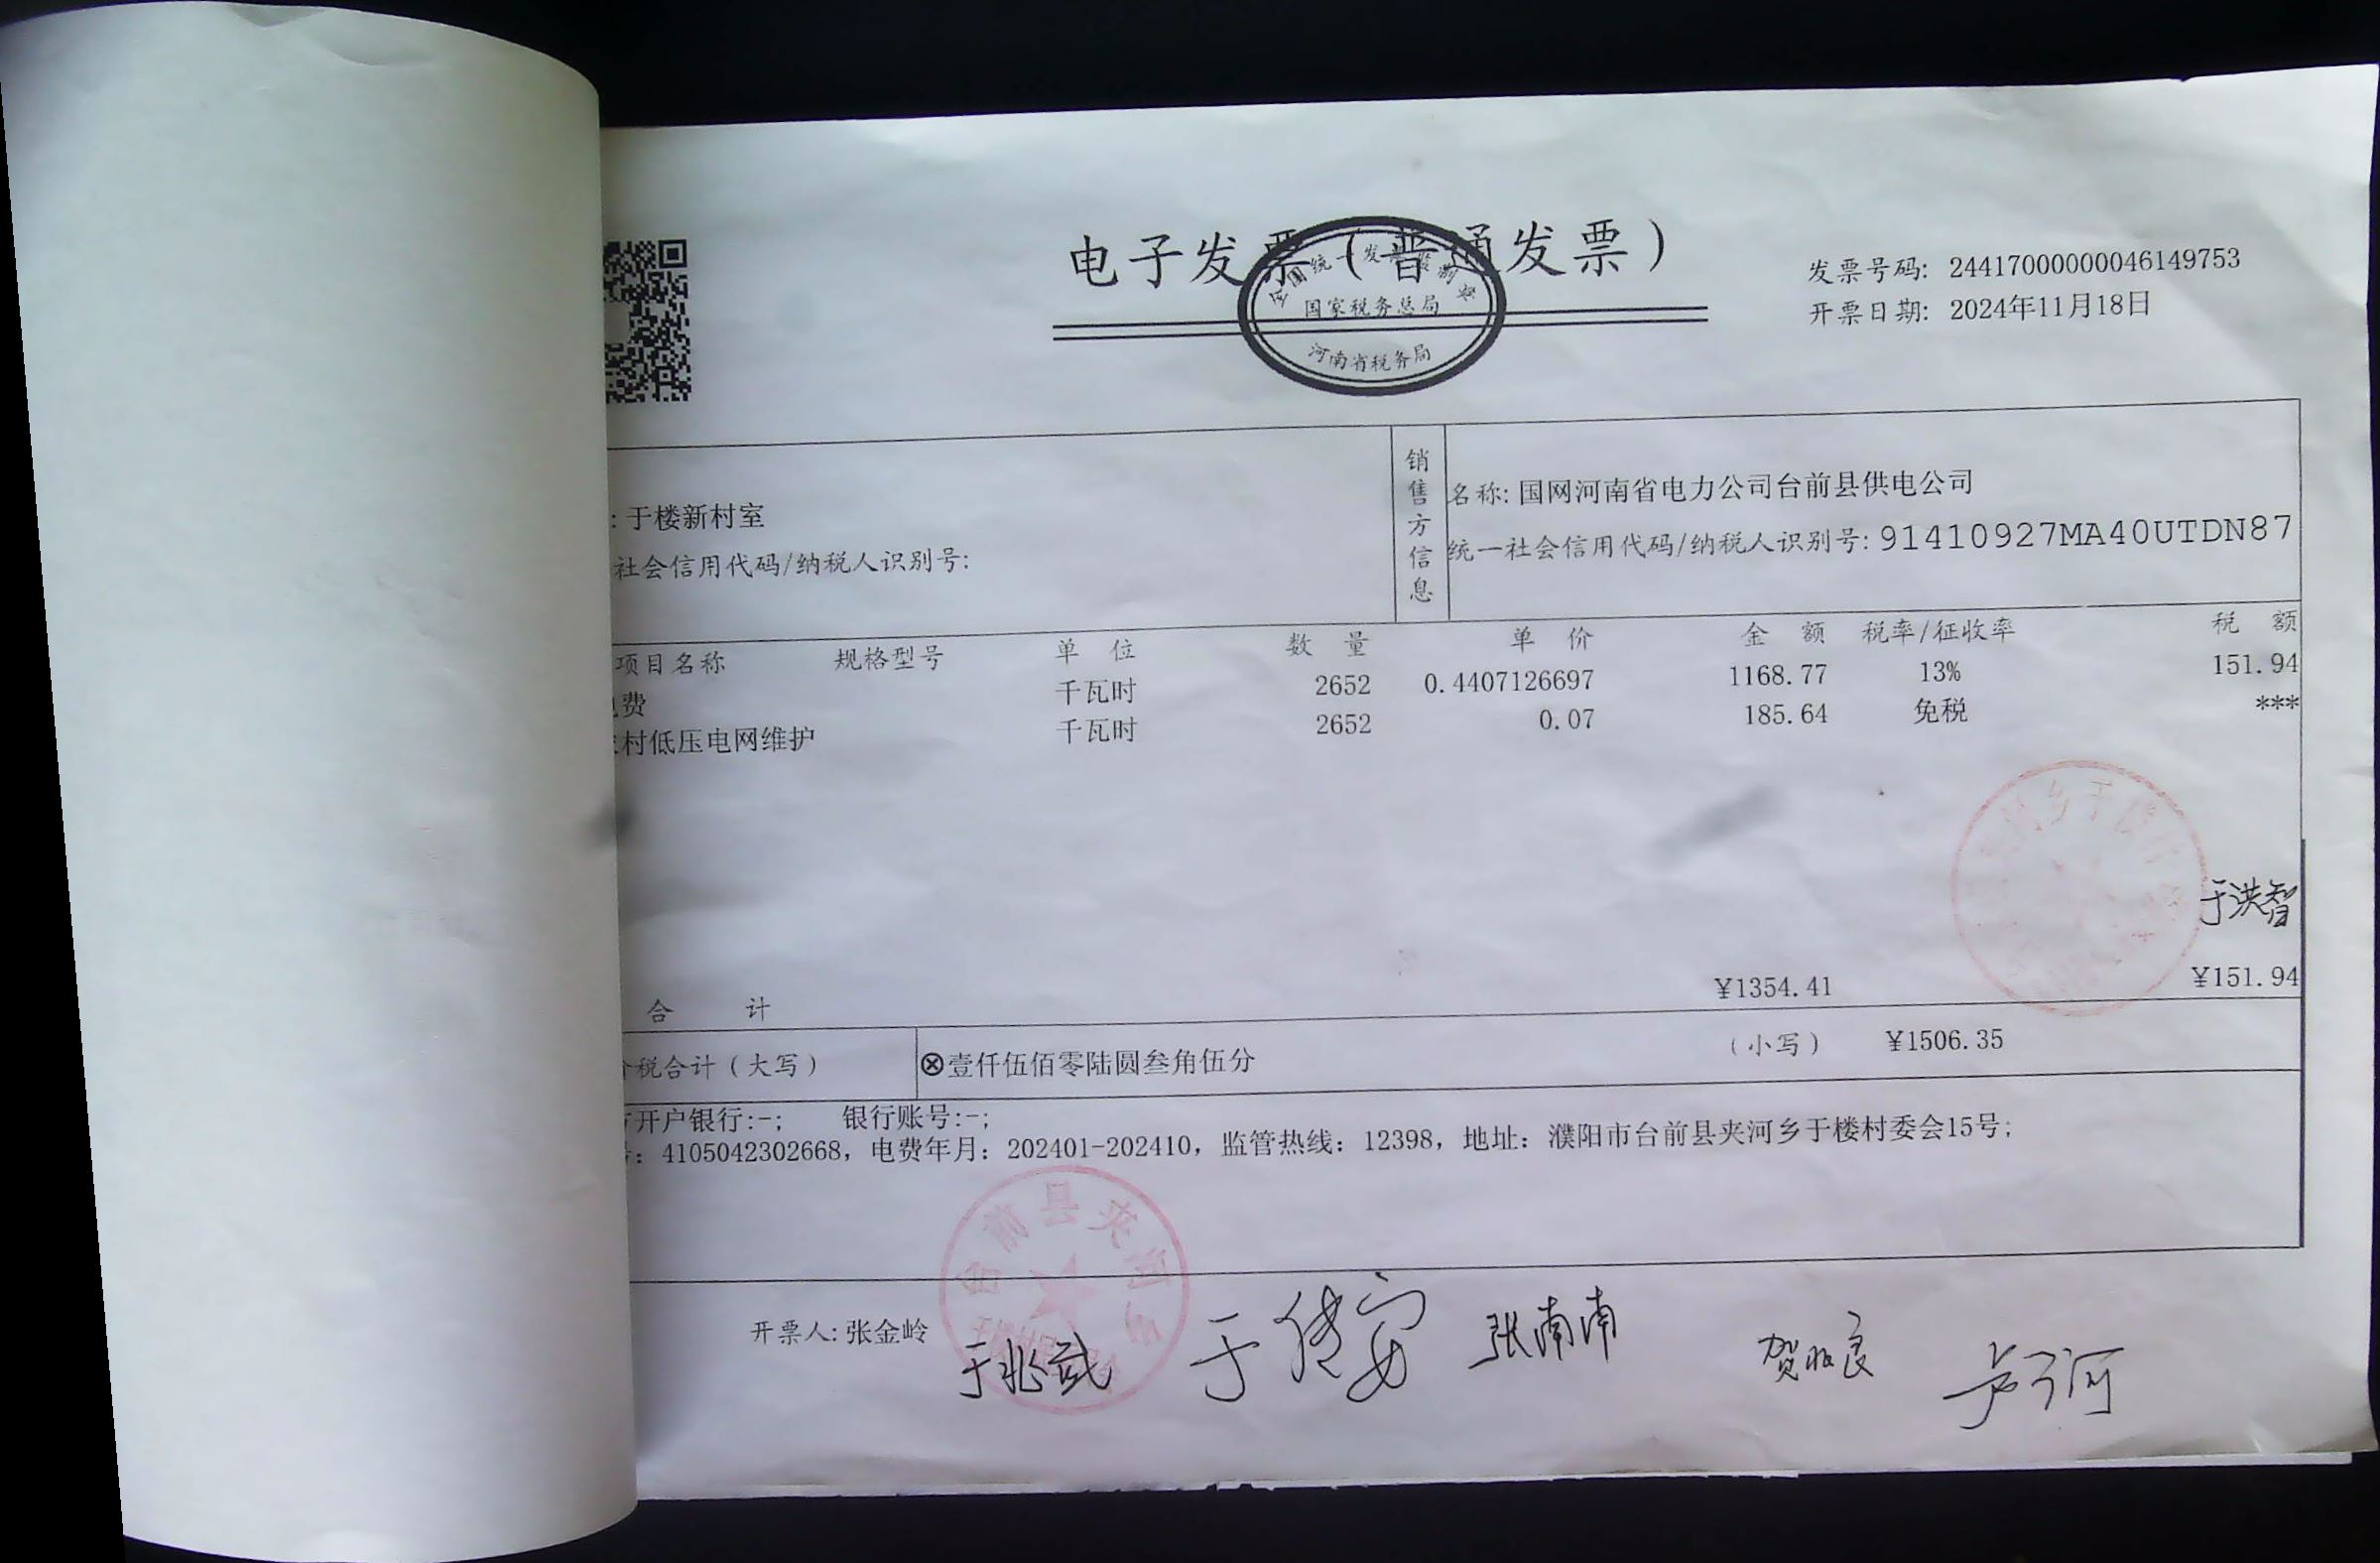 电子发票（普通发票）
全国统一发票监制章
国家税务总局
河南省税务局
发票号码: 24417000000046149753
开票日期: 2024年11月18日
: 于楼新村室
社会信用代码/纳税人识别号:
销售方信息
名称: 国网河南省电力公司台前县供电公司
统一社会信用代码/纳税人识别号: 91410927MA40UTDN87
项目名称 规格型号 单位 数量 单价 金额 税率/征收率 税额
费 千瓦时 2652 0.4407126697 1168.77 13% 151.94
村低压电网维护 千瓦时 2652 0.07 185.64 免税 ***
于洪智
合计 ¥1354.41 ¥151.94
税合计（大写） ⊗壹仟伍佰零陆圆叁角伍分 （小写） ¥1506.35
开户银行:-; 银行账号:-;
: 4105042302668, 电费年月: 202401-202410, 监管热线: 12398, 地址: 濮阳市台前县夹河乡于楼村委会15号;
台前县夹河乡
开票人: 张金岭
于兆武 于传安 张南南 贺 良 卢 河